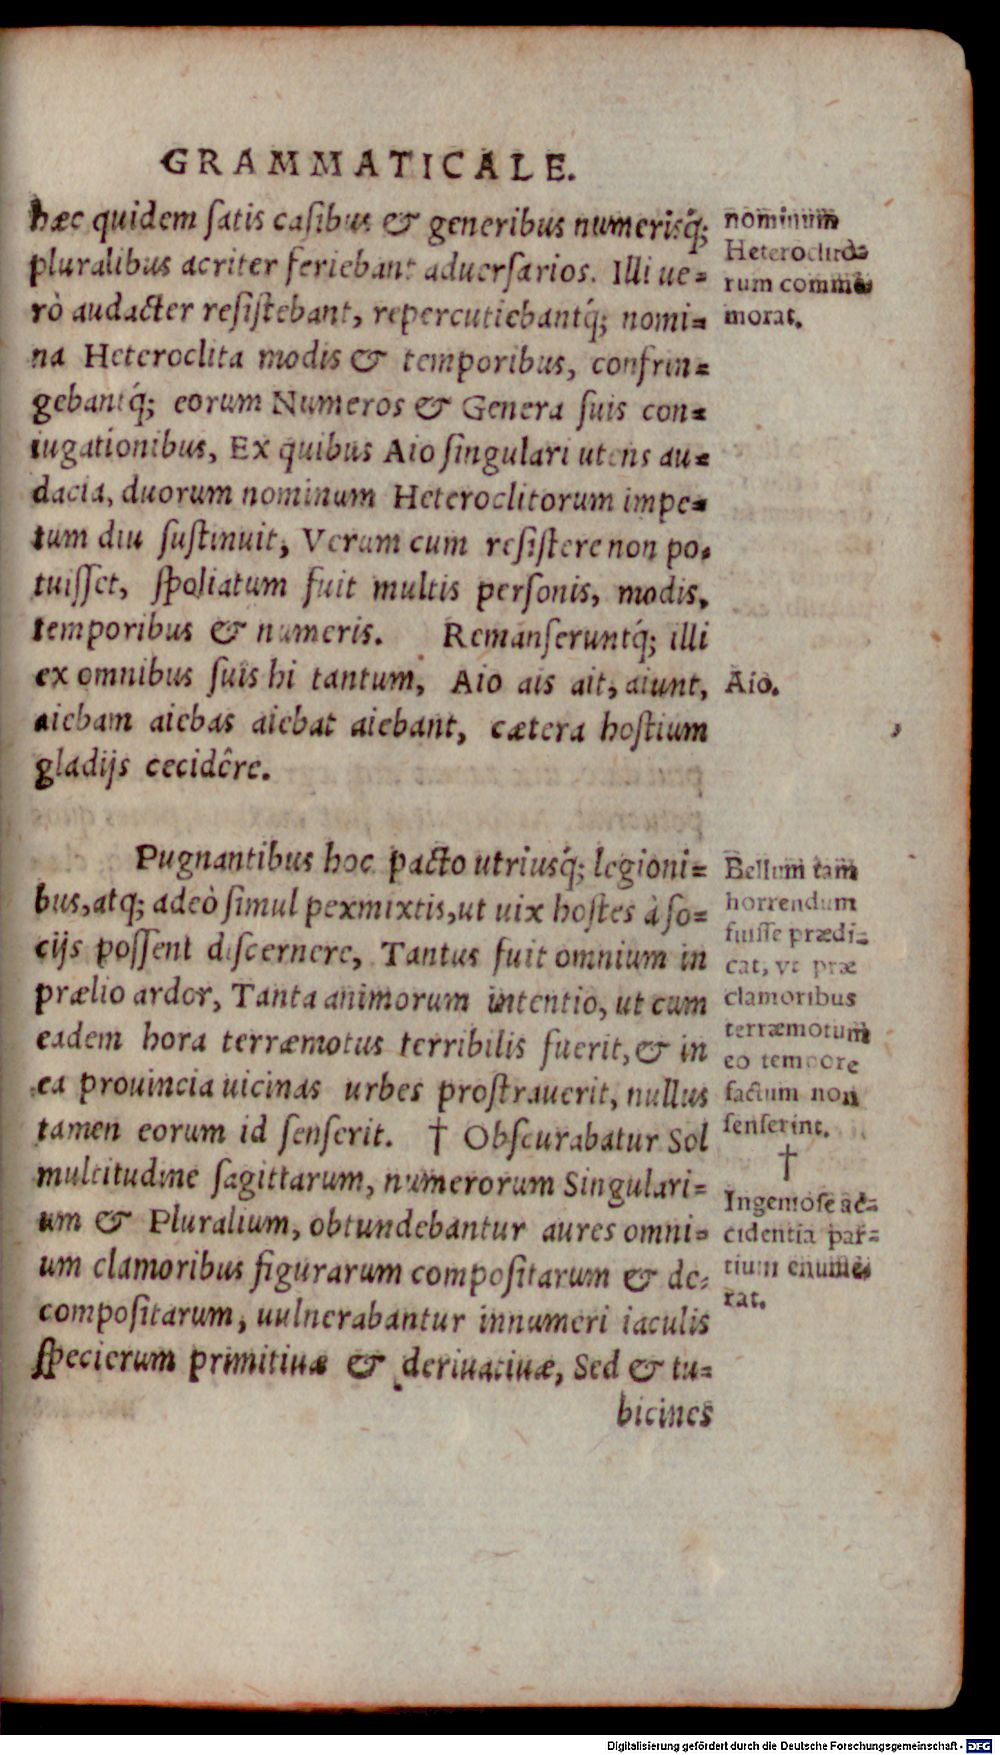 GRAMMATICALE.
hæc quidem ſatis caſibus & generibus numerisq́;
pluralibus acriter feriebant aduerſarios. Illi ue=
rò audacter reſiſtebant, repercutiebantq́; nomi=
na Heteroclita modis & temporibus, confrin=
gebantq́; eorum Numeros & Genera ſuis con=
iugationibus, Ex quibus Aio ſingulari utens au=
dacia, duorum nominum Heteroclitorum impe=
tum diu ſuſtinuit, Verum cum reſiſtere non po=
tuiſſet, ſpoliatum fuit multis perſonis, modis,
temporibus & numeris. Remanſeruntq́; illi
ex omnibus ſuis hi tantum, Aio ais ait, aiunt,
aiebam aiebas aiebat aiebant, cætera hoſtium
gladijs cecidêre.
Pugnantibus hoc pacto utriusq́; legioni=
bus, atq; adeò ſimul pexmixtis, ut uix hoſtes à ſo=
cijs poſſent diſcernere, Tantus fuit omnium in
prælio ardor, Tanta animorum intentio, ut cum
eadem hora terræmotus terribilis fuerit, & in
ea prouincia uicinas urbes proſtrauerit, nullus
tamen eorum id ſenſerit. † Obſcurabatur Sol
multitudine ſagittarum, numerorum Singulari=
um & Pluralium, obtundebantur aures omni=
um clamoribus figurarum compoſitarum & de=
compoſitarum, uulnerabantur innumeri iaculis
ſpecierum primitiuæ & deriuatiuæ, Sed & tu=
bicines
nominum
Heteroclito=
rum comme=
morat.
Aio.
Bellum tam
horrendum
fuiſſe prædi=
cat, vt præ
clamoribus
terræmotum
eo tempore
factum non
ſenſerint.
†
Ingenioſe ac=
cidentia par=
tium enume=
rat.
Digitalisierung gefördert durch die Deutsche Forschungsgemeinschaft - DFG